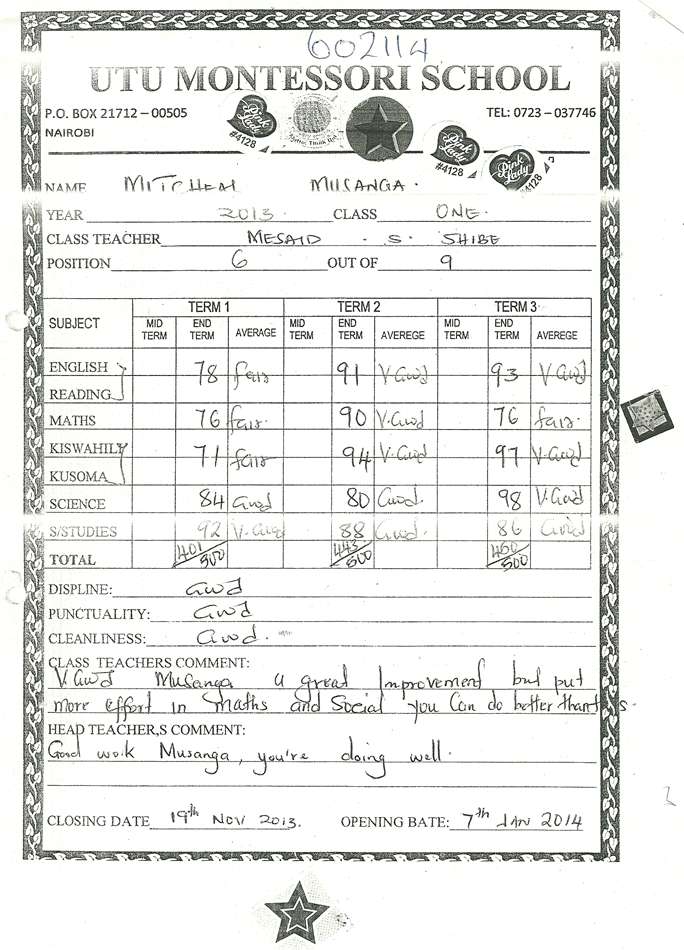 602114
UTU MONTESSORI SCHOOL
P.O. BOX 21712 – 00505 TEL: 0723 – 037746
NAIROBI
Pink Lady #4128
Pink Lady #4128
Pink Lady 4128
NAME MITCHEAL MUSANGA.
YEAR 2013. CLASS ONE.
CLASS TEACHER MESAID . S. SHIBE
POSITION 6 OUT OF 9
SUBJECT TERM 1 TERM 2 TERM 3
MID TERM END TERM AVERAGE MID TERM END TERM AVEREGE MID TERM END TERM AVEREGE
ENGLISH 78 fair 91 V.Good 93 V.Good
READING
MATHS 76 fair. 90 V.Good 76 fair.
KISWAHILI 71 fair 94 V.Good 97 V.Good
KUSOMA
SCIENCE 84 Good 80 Good. 98 V.Good
S/STUDIES 92 V.Good 88 Good. 86 Good
TOTAL 401/500 443/500 450/500
DISPLINE: Good
PUNCTUALITY: Good
CLEANLINESS: Good.
CLASS TEACHERS COMMENT:
V.Good Musanga a great Improvement but put
more effort in maths and Social you Can do better than
HEAD TEACHER,S COMMENT:
Good work Musanga, you're doing well.
CLOSING DATE 19th NOV 2013. OPENING BATE: 7th JAN 2014